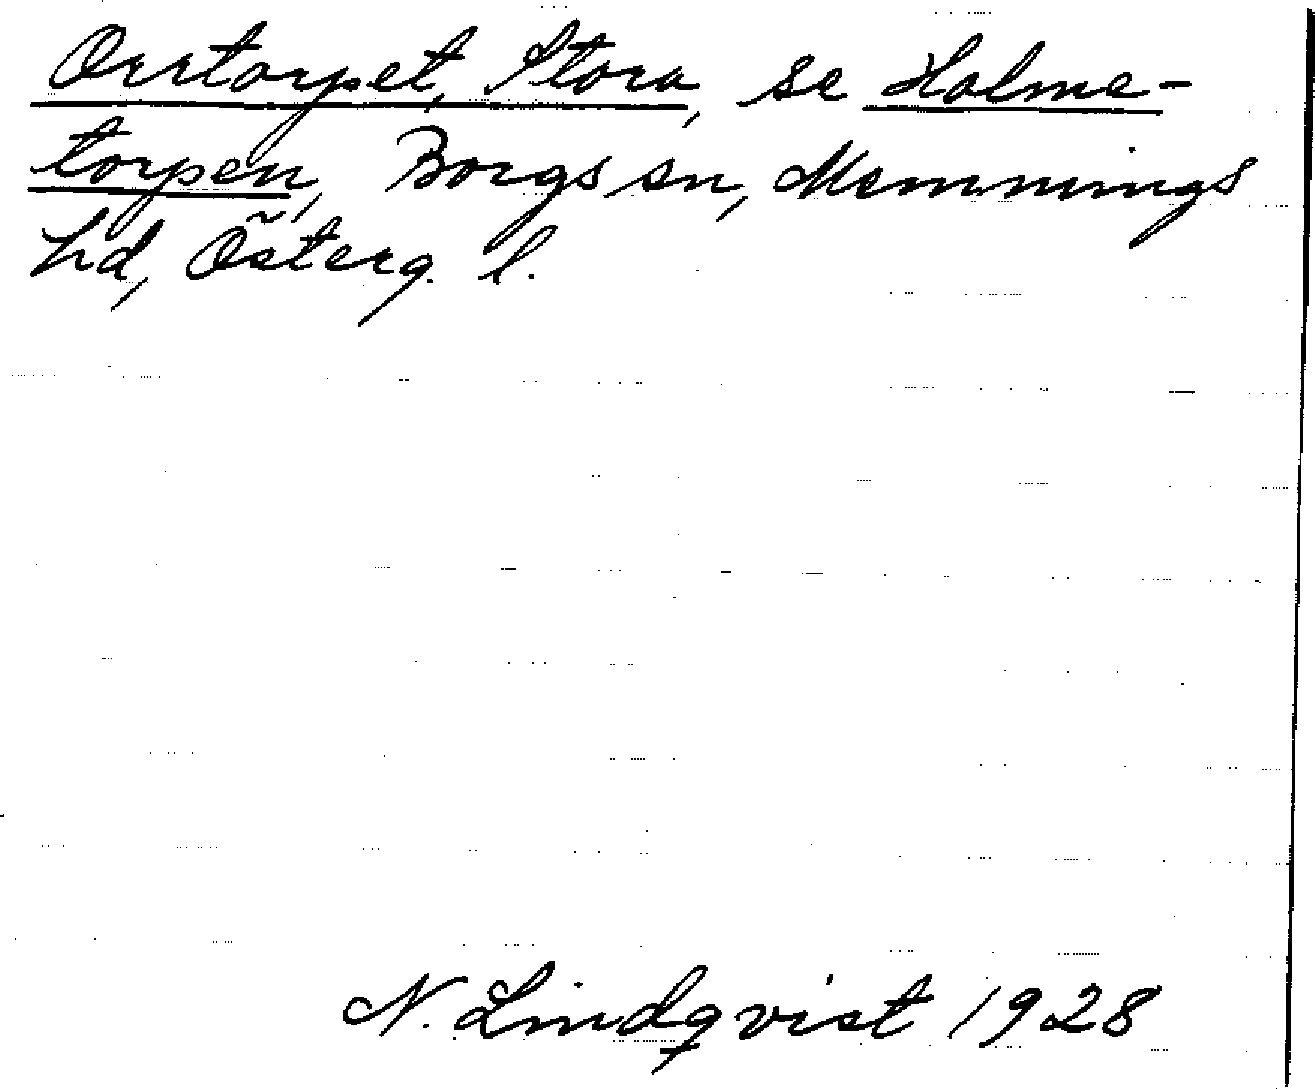 Orrtorpet, Stora, se Holme-
torpen, Borgs sn, Memmings
hd, Österg. l.
N. Lindqvist 1928